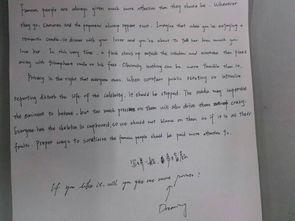 Famous people are always given much more attention than they should be. Wherever
they go, Cameras and the paparazzi always appear there. Imagine that when you're enjoying a
romantic candle-lit dinner with your lover and you're about to tell her how much you
love her. In this very time, a flash shines up outside the window and someone
away with triumphant smile on his face. Obviously nothing can be more terrible than
Privacy is the right that everyone owns. When constant public or intensive
reporting disturb the life of the celebrity, it should be stopped. The media may supervise
the eminent to behave, but too much pressure on them will also drive them crazy.
Everyone has the skeleton in cupboard, so we should not blame on them as if it is all their
faults. Proper ways to scrutinize the famous people should be paid more attention to.
If you like it, will you give me more
Dreaming